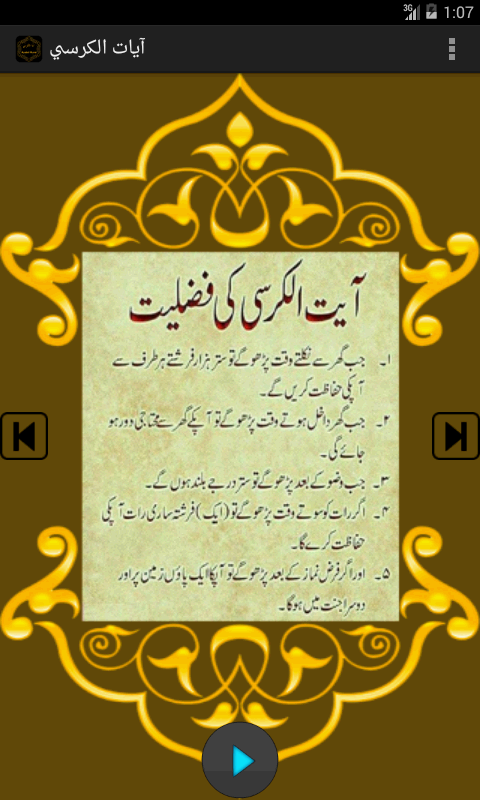 3G 1:07
آيات الكرسي
آیت الکرسی کی فضلیت
۱۔ جب گھر سے نکلتے وقت پڑھو گے تو ستر ہزار فرشتے ہر طرف سے
آپکی حفاظت کریں گے۔
۲۔ جب گھر داخل ہوتے وقت پڑھو گے تو آپکے گھر سے محتاجی دور ہو
جائے گی۔
۳۔ جب وضو کے بعد پڑھو گے تو ستر درجے بلند ہوں گے۔
۴۔ اگر رات کو سوتے وقت پڑھو گے تو (ایک) فرشتہ ساری رات آپکی
حفاظت کرے گا۔
۵۔ اور اگر فرض نماز کے بعد پڑھو گے تو آپکا ایک پاؤں زمین پر اور
دوسرا جنت میں ہوگا۔